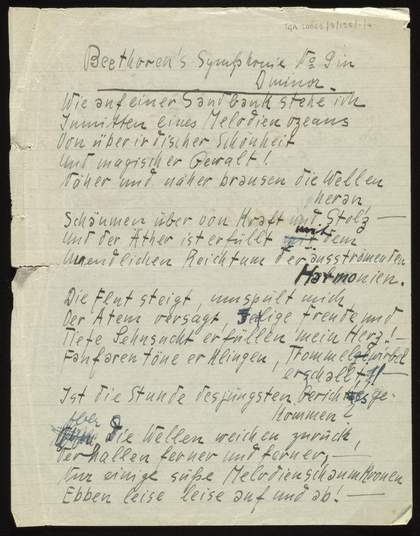 TGA 20068/3/125/1/4
Beethoven's Symphonie No 9 in
D minor.
Wie auf einer Sandbank stehe ich
Inmitten eines Melodien ozeans
Von überirdischer Schönheit
Und magischer Gewalt!
Näher und näher brausen die Wellen
heran
Schäumen über von Kraft und Stolz —
Und der Äther ist erfüllt mit dem
Unendlichen Reichtum der ausströmenden
Harmonien.
Die Flut steigt, umspült mich
Der Atem versagt, Selige Freude und
Tiefe Sehnsucht erfüllen mein Herz! —
Fanfarentöne erklingen, Trommelgewirbel
erschallt!!
Ist die Stunde des jüngsten Gerichts ge-
kommen?
Aber die Wellen weichen zurück,
Verhallen ferner und ferner, —
Nur einige süße Melodienschaumkronen
Ebben leise leise auf und ab! —